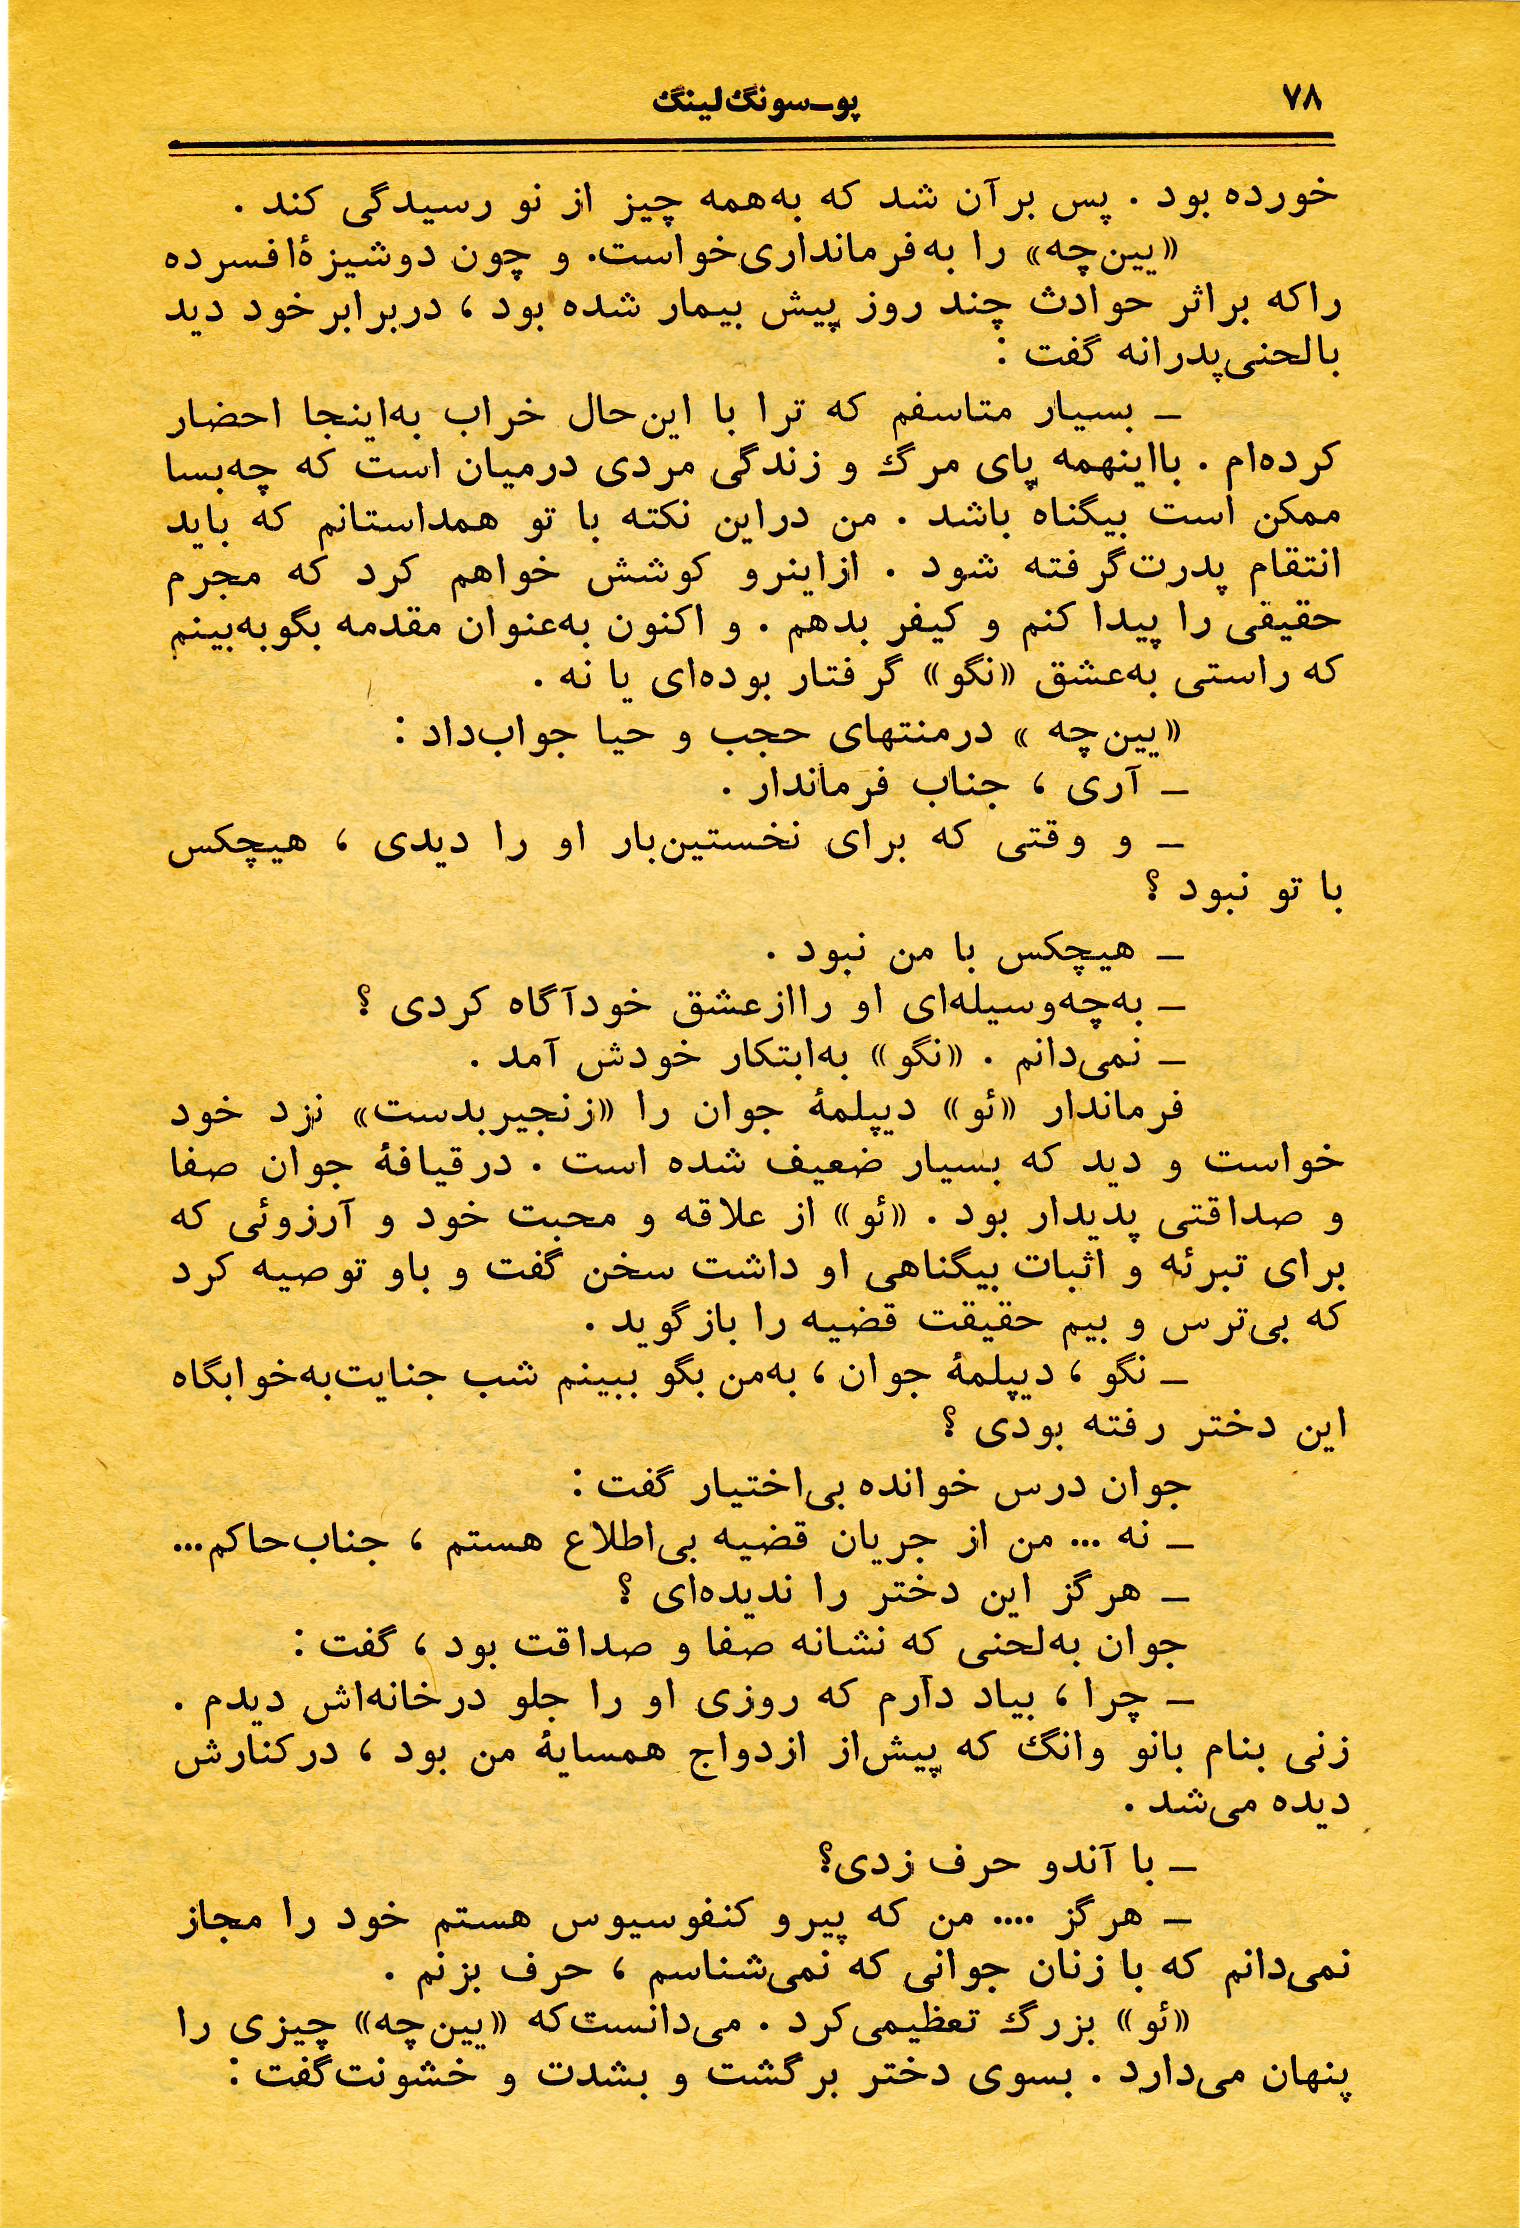 ۷۸
پو_سونگ‌لینگ
خورده بود . پس برآن شد که به‌همه چیز از نو رسیدگی کند .
«یین‌چه» را به‌فرمانداری‌خواست. و چون دوشیزهٔ‌افسرده
راکه براثر حوادث چند روز پیش بیمار شده بود ، دربرابرخود دید
بالحنی‌پدرانه گفت :
_ بسیار متاسفم که ترا با این‌حال خراب به‌اینجا احضار
کرده‌ام . بااینهمه پای مرگ و زندگی مردی درمیان است که چه‌بسا
ممکن است بیگناه باشد . من دراین نکته با تو همداستانم که باید
انتقام پدرت‌گرفته شود . ازاینرو کوشش خواهم کرد که مجرم
حقیقی را پیدا کنم و کیفر بدهم . و اکنون به‌عنوان مقدمه بگوبه‌بینم
که راستی به‌عشق «نگو» گرفتار بوده‌ای یا نه .
«یین‌چه » درمنتهای حجب و حیا جواب‌داد :
_ آری ، جناب فرماندار .
_ و وقتی که برای نخستین‌بار او را دیدی ، هیچکس
با تو نبود ؟
_ هیچکس با من نبود .
_ به‌چه‌وسیله‌ای او راازعشق خودآگاه کردی ؟
_ نمی‌دانم . «نگو» به‌ابتکار خودش آمد .
فرماندار «ئو» دیپلمهٔ جوان را «زنجیربدست» نزد خود
خواست و دید که بسیار ضعیف شده است . درقیافهٔ جوان صفا
و صداقتی پدیدار بود . «ئو» از علاقه و محبت خود و آرزوئی که
برای تبرئه و اثبات بیگناهی او داشت سخن گفت و باو توصیه کرد
که بی‌ترس و بیم حقیقت قضیه را بازگوید .
_ نگو ، دیپلمهٔ جوان ، به‌من بگو ببینم شب جنایت‌به‌خوابگاه
این دختر رفته بودی ؟
جوان درس خوانده بی‌اختیار گفت :
_ نه ... من از جریان قضیه بی‌اطلاع هستم ، جناب‌حاکم...
_ هرگز این دختر را ندیده‌ای ؟
جوان به‌لحنی که نشانه صفا و صداقت بود ، گفت :
_ چرا ، بیاد دارم که روزی او را جلو درخانه‌اش دیدم .
زنی بنام بانو وانگ که پیش‌از ازدواج همسایهٔ من بود ، درکنارش
دیده می‌شد .
_ با آندو حرف زدی؟
_ هرگز .... من که پیرو کنفوسیوس هستم خود را مجاز
نمی‌دانم که با زنان جوانی که نمی‌شناسم ، حرف بزنم .
«ئو» بزرگ تعظیمی‌کرد . می‌دانست‌که «یین‌چه» چیزی را
پنهان می‌دارد . بسوی دختر برگشت و بشدت و خشونت‌گفت :